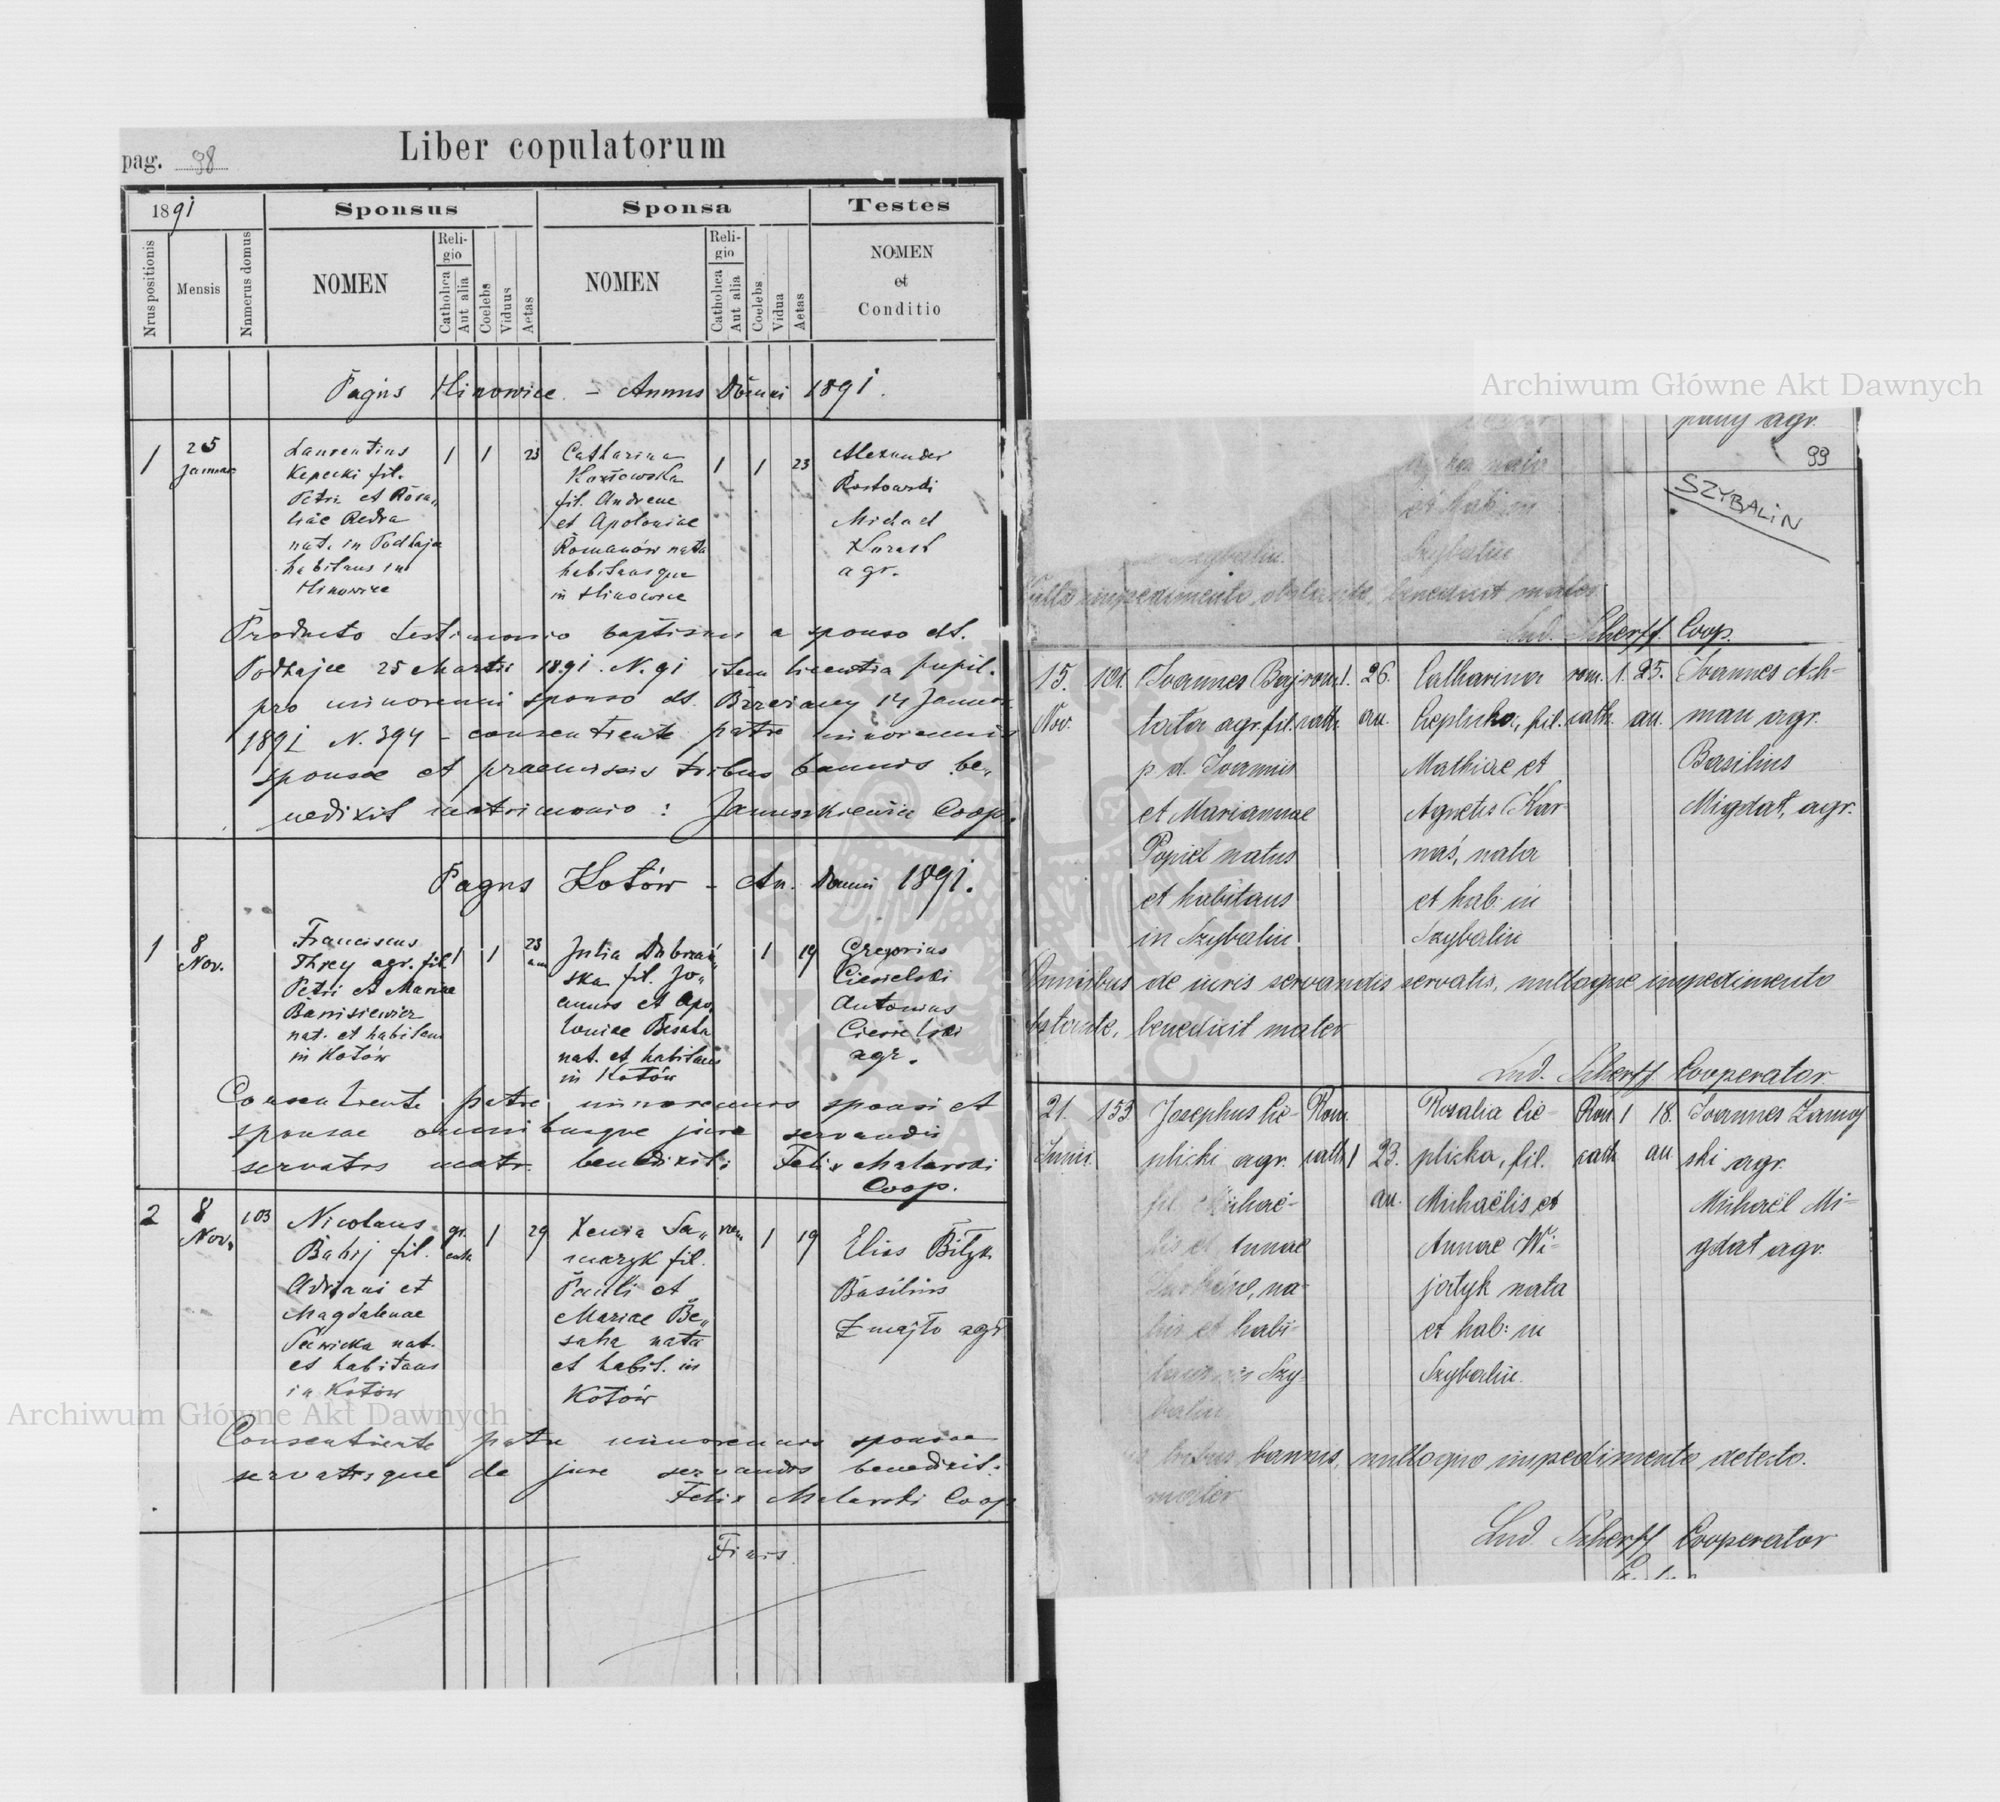 Liber copulatorum
pag. 98
1891
Sponsus
Sponsa
Testes
Nrus positionis
Mensis
Numerus domus
NOMEN
Religio
Catholica
Aut alia
Coelebs
Viduus
Aetas
NOMEN
Religio
Catholica
Aut alia
Coelebs
Vidua
Aetas
NOMEN
et
Conditio
Pagus Hinowice - Annus Domini 1891.
1 25 Januar
Laurentius
Kepecki fil.
Petri et Rosa„
liae Redra
nat. in Podhajce
habitans in
Hinowice
1 1 23
Catharina
Kozłowska
fil. Andreae
et Apoloniae
Romanów nata
habitansque
in Hinowice
1 1 23
Alexander
Rostowski
Michael
agr.
Producto testimonio baptismi a sponso dt.
Podhajce 25 Martii 1891. N. 91 item licentia pupil.
pro minorenni sponso dt. Brzeżany 14 Januar
1891 N. 394 - consentiente patre minorennis
sponsae et praemissis tribus bannis be„
nedixit matrimonio: Januszkiewicz Coop.
Pagus Kotów - An. Domini 1891.
1 8 Nov.
Franciscus
Threy agr. fil.
Petri et Mariae
Barrisiewicz
nat. et habitans
in Kotów
1 1 23 an
Julia Dobrzań„
ska fil. Jo„
annis et Apo„
loniae Besaha
nat. et habitans
in Kotów
1 19
Gregorius
Ciesielski
Antonius
Ciesielski
agr.
Consentiente patre minorennis sponsi et
sponsae omnibusque jure servandis
servatis matr. benedixit: Felix Malarski
Coop.
2 8 Nov. 103
Nicolaus
Babij fil.
Adriani et
Magdalenae
Sawicka nat.
et habitans
in Kotów
gr. cath. 1 29
Xenia Sa„
maryk fil.
Pauli et
Mariae Be„
saha nata
et habit. in
Kotów
rom 1 19
Elias
Basilius
Zmajło agr
Consentiente patre minorennis sponsae
servatisque de jure servandis benedixit:
Felix Malarski Coop
Finis.
agr.
99
SZYBALIN
et hab. in
Szybalin. Szybalin
Nullo impedimento obstante, benedixit mater.
Lud. Scherff. Coop.
15. Nov. 101.
Joannes Baj-
lata agr. fil.
p. d. Joannis
et Mariannae
Popiel natus
et habitans
in Szybalin
rom. cath. 1. 26. an.
Catharina
Cieplicka, fil.
Mathiae et
Agnetis Kar-
naś, nata
et hab. in
Szybalin
rom. cath. 1. 25. an.
Joannes Ach-
man agr.
Basilius
Migdat, agr.
Omnibus de iuris servandis servatis, nulloque impedimento
obstante, benedixit mater
Lud. Scherff. Cooperator.
21. Junii. 153
Josephus Cie-
plicki agr.
fil. Michaë-
lis et Annae
na-
tus et habi-
tans in Szy-
balin
Rom. cath. 1 23. an.
Rosalia Cie-
plicka, fil.
Michaëlis et
Annae Wi-
jatyk nata
et hab: in
Szybalin.
Rom. cath. 1 18. an
Joannes Zamoj
ski agr.
Michaël Mi-
gdat agr.
tribus bannis, nulloque impedimento detecto.
mater
Lud. Scherff Cooperator
Archiwum Główne Akt Dawnych
Archiwum Główne Akt Dawnych